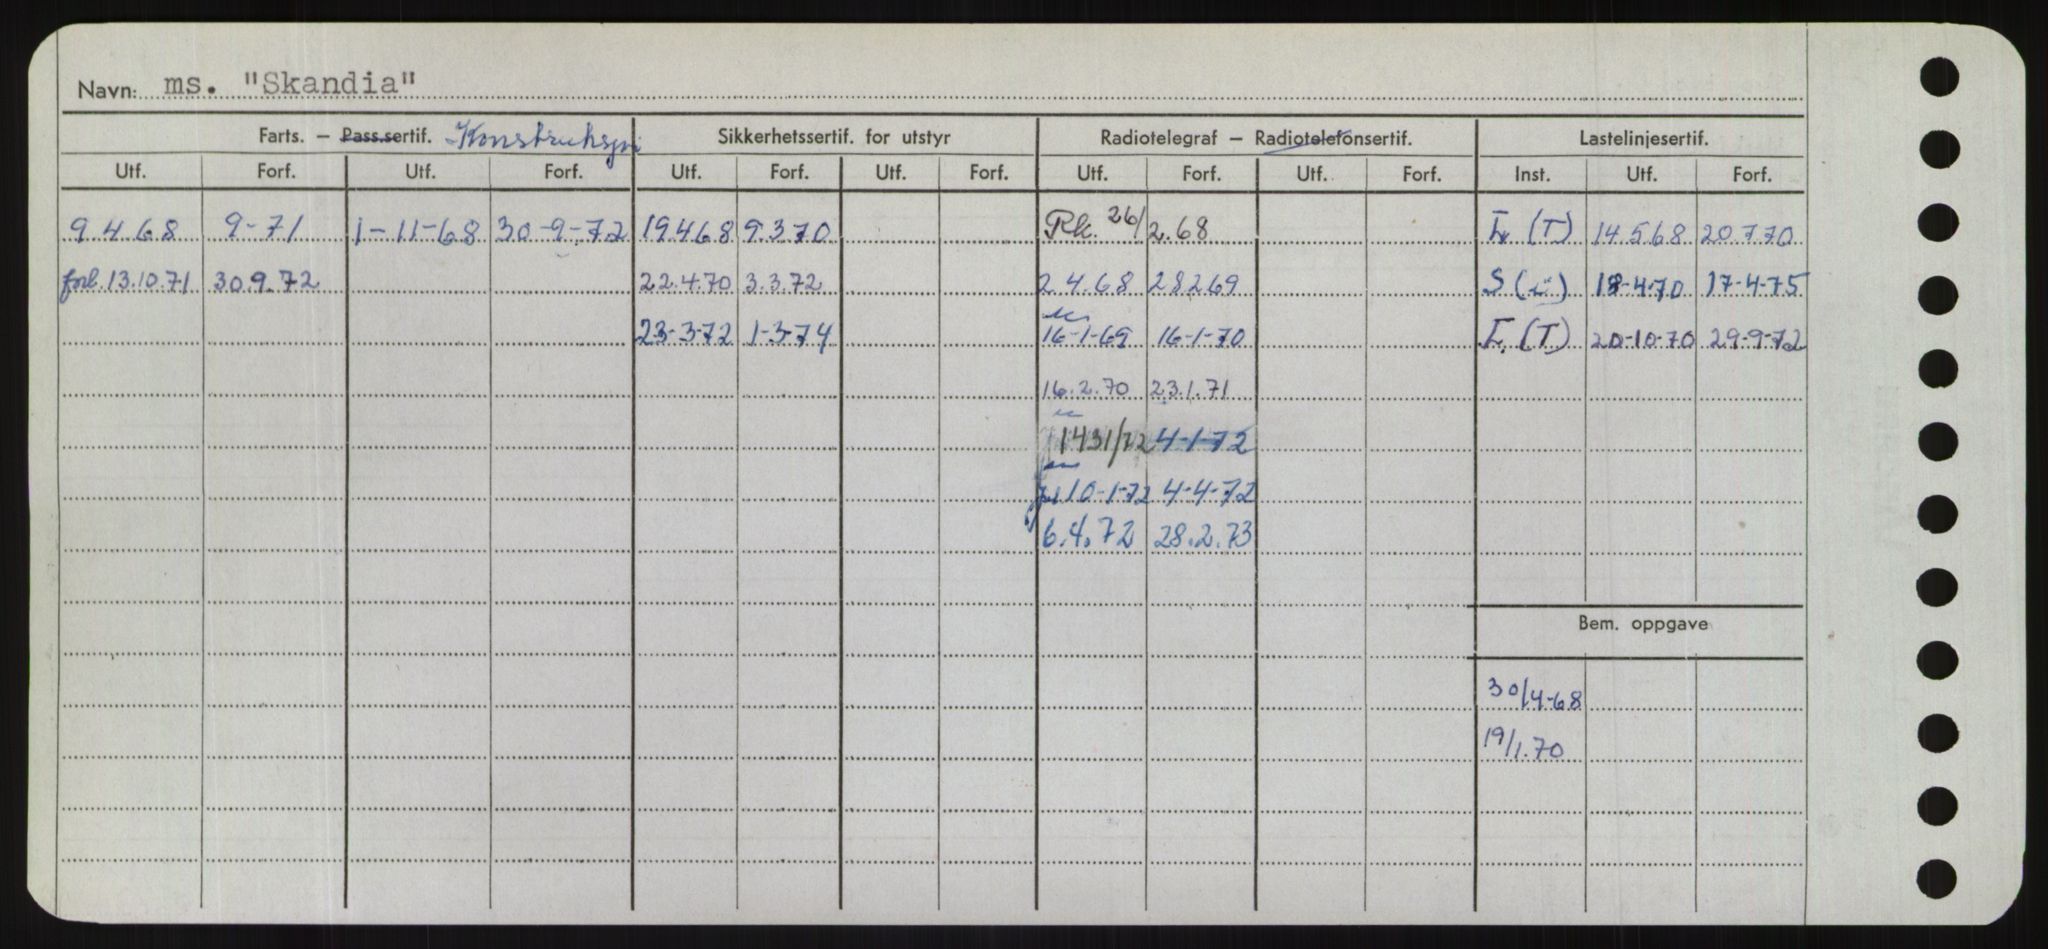 Navn: ms. "Skandia"
Farts. – Pass.sertif. Konstruksjon Sikkerhetssertif. for utstyr Radiotelegraf – Radiotelefonsertif. Lastelinjesertif.
Utf. Forf. Utf. Forf. Utf. Forf. Utf. Forf. Utf. Forf. Utf. Forf. Inst. Utf. Forf.
9.4.68 9-71 1-11-68 30-9-72 19.4.68 9.3.70 Rk. 26/2.68 (T) 14.5.68 20.7.70
forl. 13.10.71 30.9.72 22.4.70 3.3.72 2.4.68 28.2.69 S 18-4-70 17-4-75
23-3-72 1-3-74 16-1-69 16-1-70 (T) 20-10-70 29-9-72
16.2.70 23.1.71
1431/72 4-1-72
10-1-72 4-4-72
6.4.72 28.2.73
Bem. oppgave
30/4-68
19/1.70